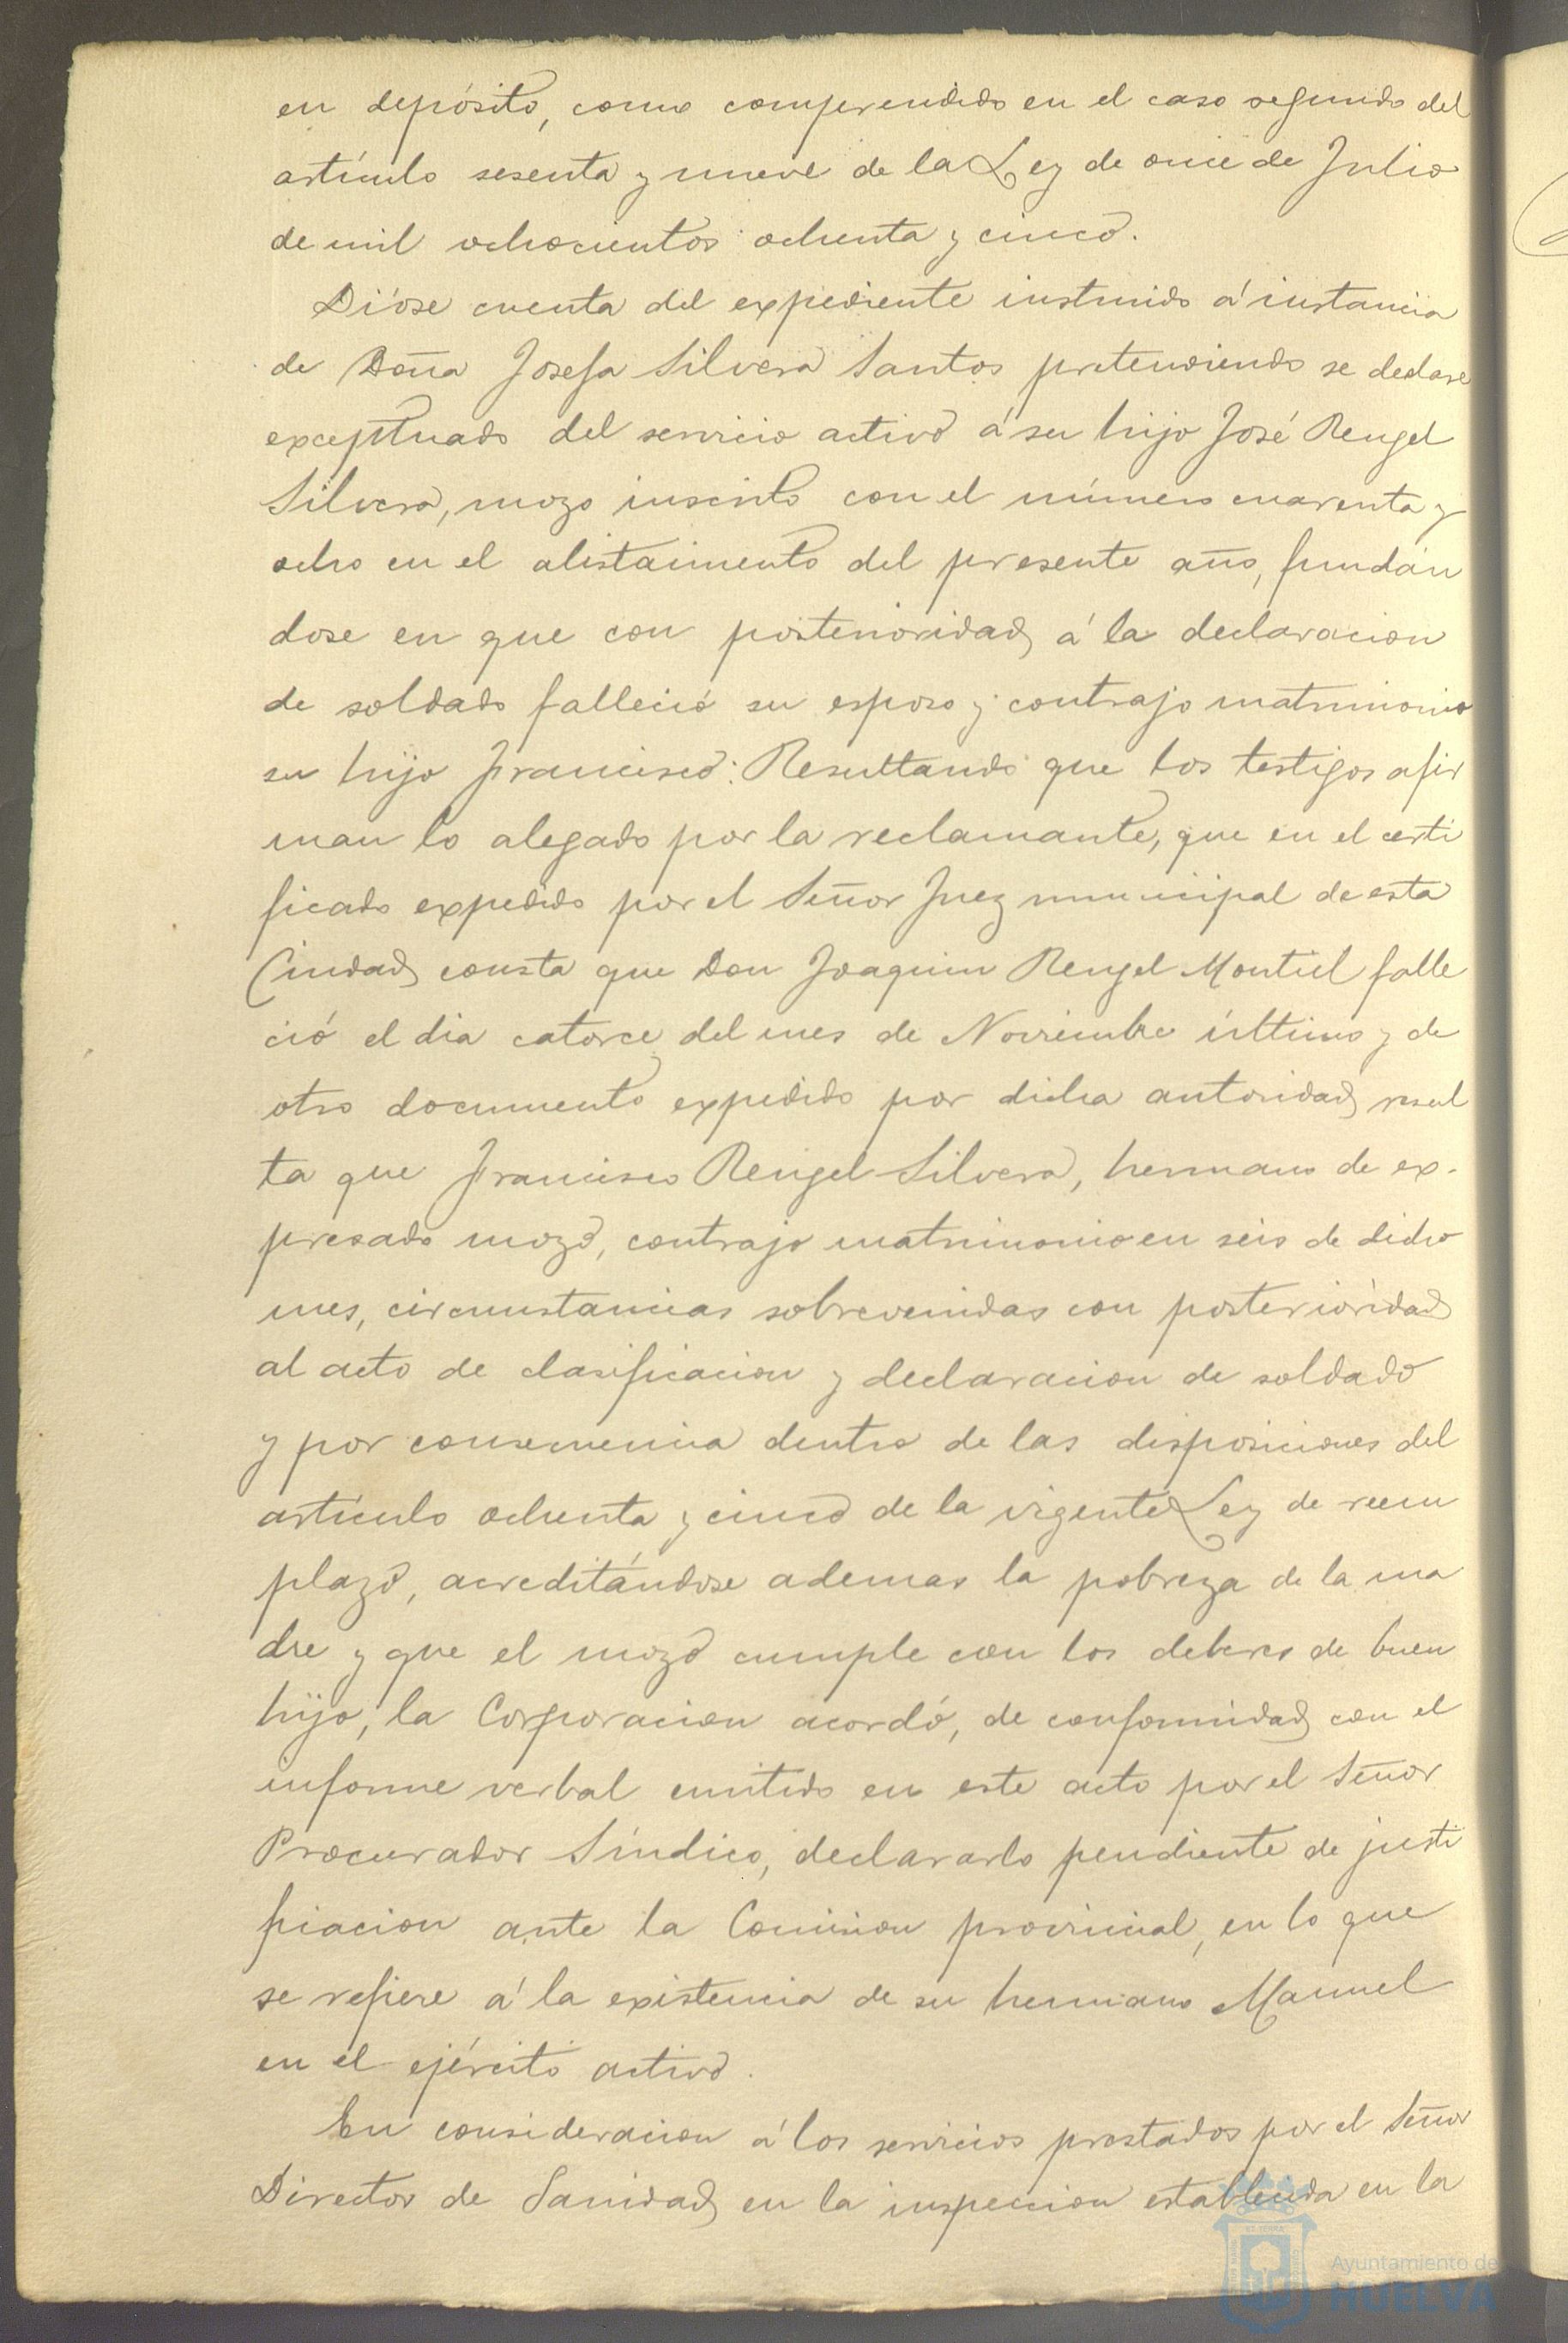 en depósito, como comprendido en el caso segundo del
artículo sesenta y nueve de la Ley de once de Julio
de mil ochocientos ochenta y cinco.
Dióse cuenta del expediente instruido á instancia
de Doña Josefa Silvera Santos pretendiendo se declare
exceptuado del servicio activo á su hijo José Rengel
Silvera, mozo inscrito con el número cuarenta y
ocho en el alistaimento del presente año, fundán
dose en que con posterioridad á la declaracion
de soldado falleció su esposo y contrajo matrimonio
su hijo Francisco: Resultando que los testigos afir
man lo alegado por la reclamante, que en el certi
ficado expedido por el Señor Juez municipal de esta
Ciudad consta que Don Joaquin Rengel Montiel falle
ció el dia catorce del mes de Noviembre último y de
otro documento expedido por dicha autoridad resul
ta que Francisco Rengel Silvera, hermano de ex-
presado mozo, contrajo matrimonio en seis de dicho
mes, circunstancias sobrevenidas con posterioridad
al acto de clasificacion y declaracion de soldado
y por consecuencia dentro de las disposiciones del
artículo ochenta y cinco de la vigente Ley de reem
plazo, acreditándose ademas la pobreza de la ma
dre y que el mozo cumple con los deberes de buen
hijo; la Corporacion acordó, de conformidad con el
informe verbal emitido en este acto por el Señor
Procurador Síndico, declararlo pendiente de justi
ficacion ante la Comision provincial, en lo que
se refiere á la existencia de su hermano Manuel
en el ejército activo.
En consideracion á los servicios prestados por el Señor
Director de Sanidad en la inspeccion establecida en la
Ayuntamiento de
HUELVA